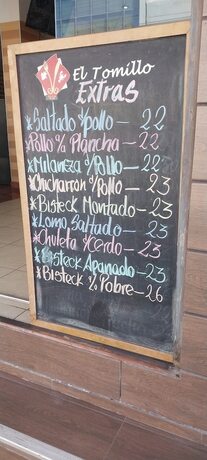 El Tomillo
Extras
*Saltado d/pollo - 22
*Pollo a/a Plancha - 22
*Milaneza d/Pollo - 22
*Chicharron d/Pollo - 23
*Bisteck Montado - 23
*Lomo Saltado - 23
*Chuleta d/Cerdo - 23
*Bisteck Apanado - 23
*Bisteck a/o Pobre - 26